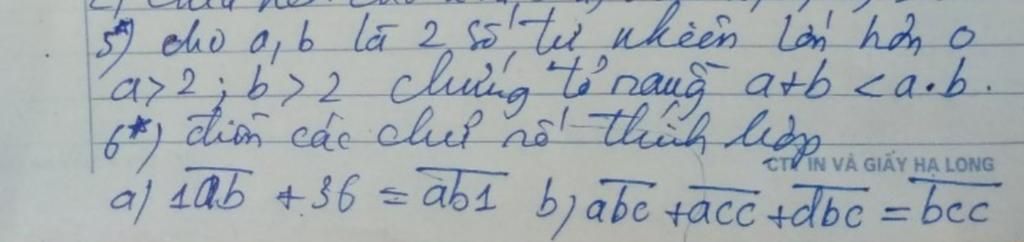 5*) cho a, b là 2 số tự nhiên lớn hơn 0
a > 2 ; b > 2 chứng tỏ rằng a + b < a . b .
6*) điền các chữ số thích hợp
CTY IN VÀ GIẤY HẠ LONG
a) 1ab + 36 = ab1 b) abc + acc + dbc = bcc